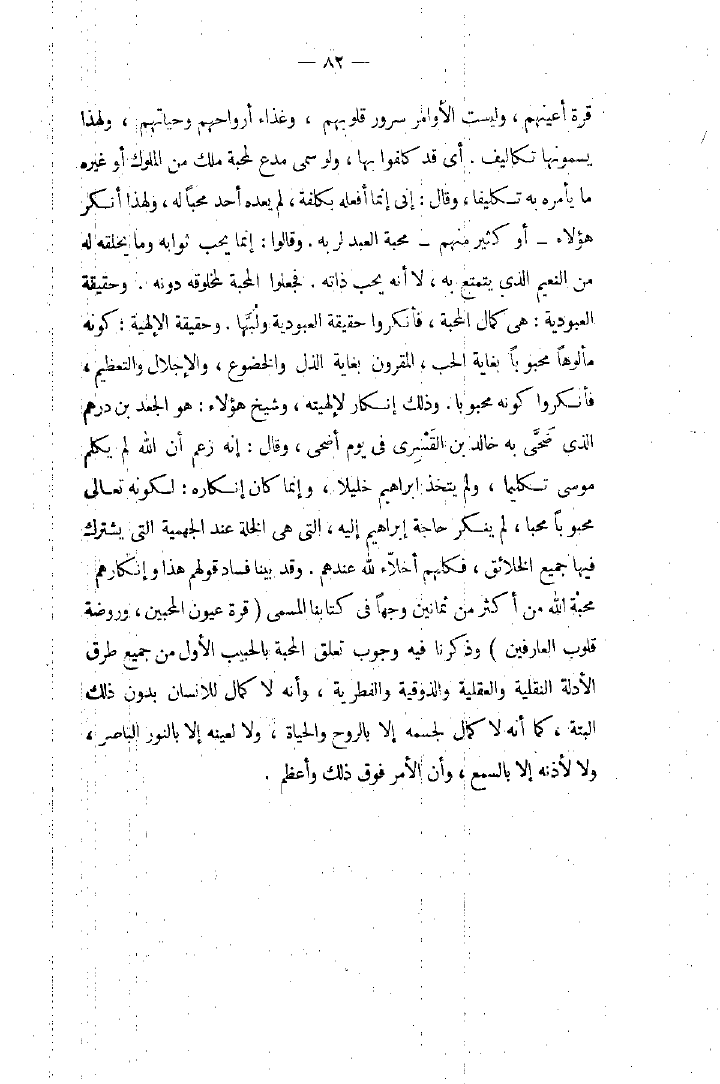 — ٨٢ —
قرة أعينهم ، وليست الأوامر سرور قلوبهم ، وغذاء أرواحهم وحياتهم ، ولهذا
يسمونها تكاليف . أى قد كلفوا بها ، ولو سمى مدع لمحبة ملك من الملوك أو غيره
ما يأمره به تكليفا ، وقال : إنى إنما أفعله بكلفة ، لم يعده أحد محباً له ، ولهذا أنكر
هؤلاء – أو كثير منهم – محبة العبد لربه . وقالوا : إنما يحب ثوابه وما يخلقه له
من النعيم الذي يتمتع به ، لا أنه يحب ذاته . فجعلوا المحبة لمخلوقه دونه . وحقيقة
العبودية : هى كمال المحبة ، فأنكروا حقيقة العبودية ولُبَّها . وحقيقة الإلهية : كونه
مألوهاً محبوباً بغاية الحب ، المقرون بغاية الذل والخضوع ، والإجلال والتعظيم ،
فأنكروا كونه محبوبا . وذلك إنكار لإلهيته ، وشيخ هؤلاء : هو الجعد بن درهم
الذي ضَحَّى به خالد بن القَسْرِى فى يوم أضحى ، وقال : إنه زعم أن الله لم يكلم
موسى تكليما ، ولم يتخذ ابراهيم خليلا ، وإنما كان إنكاره : لكونه تعالى
محبوباً محبا ، لم ينكر حاجة إبراهيم إليه ، التى هى الخلة عند الجهمية التى يشترك
فيها جميع الخلائق ، فكلهم أخلاّء لله عندهم . وقد بينا فساد قولهم هذا وإنكارهم
محبة الله من أكثر من ثمانين وجهاً فى كتابنا المسمى ( قرة عيون المحبين ، وروضة
قلوب العارفين ) وذكرنا فيه وجوب تعلق المحبة بالحبيب الأول من جميع طرق
الأدلة النقلية والعقلية والذوقية والفطرية ، وأنه لا كمال للانسان بدون ذلك
البتة ، كما أنه لا كمال لجسمه إلا بالروح والحياة ، ولا لعينه إلا بالنور الباصر ،
ولا لأذنه إلا بالسمع ، وأن الأمر فوق ذلك وأعظم .